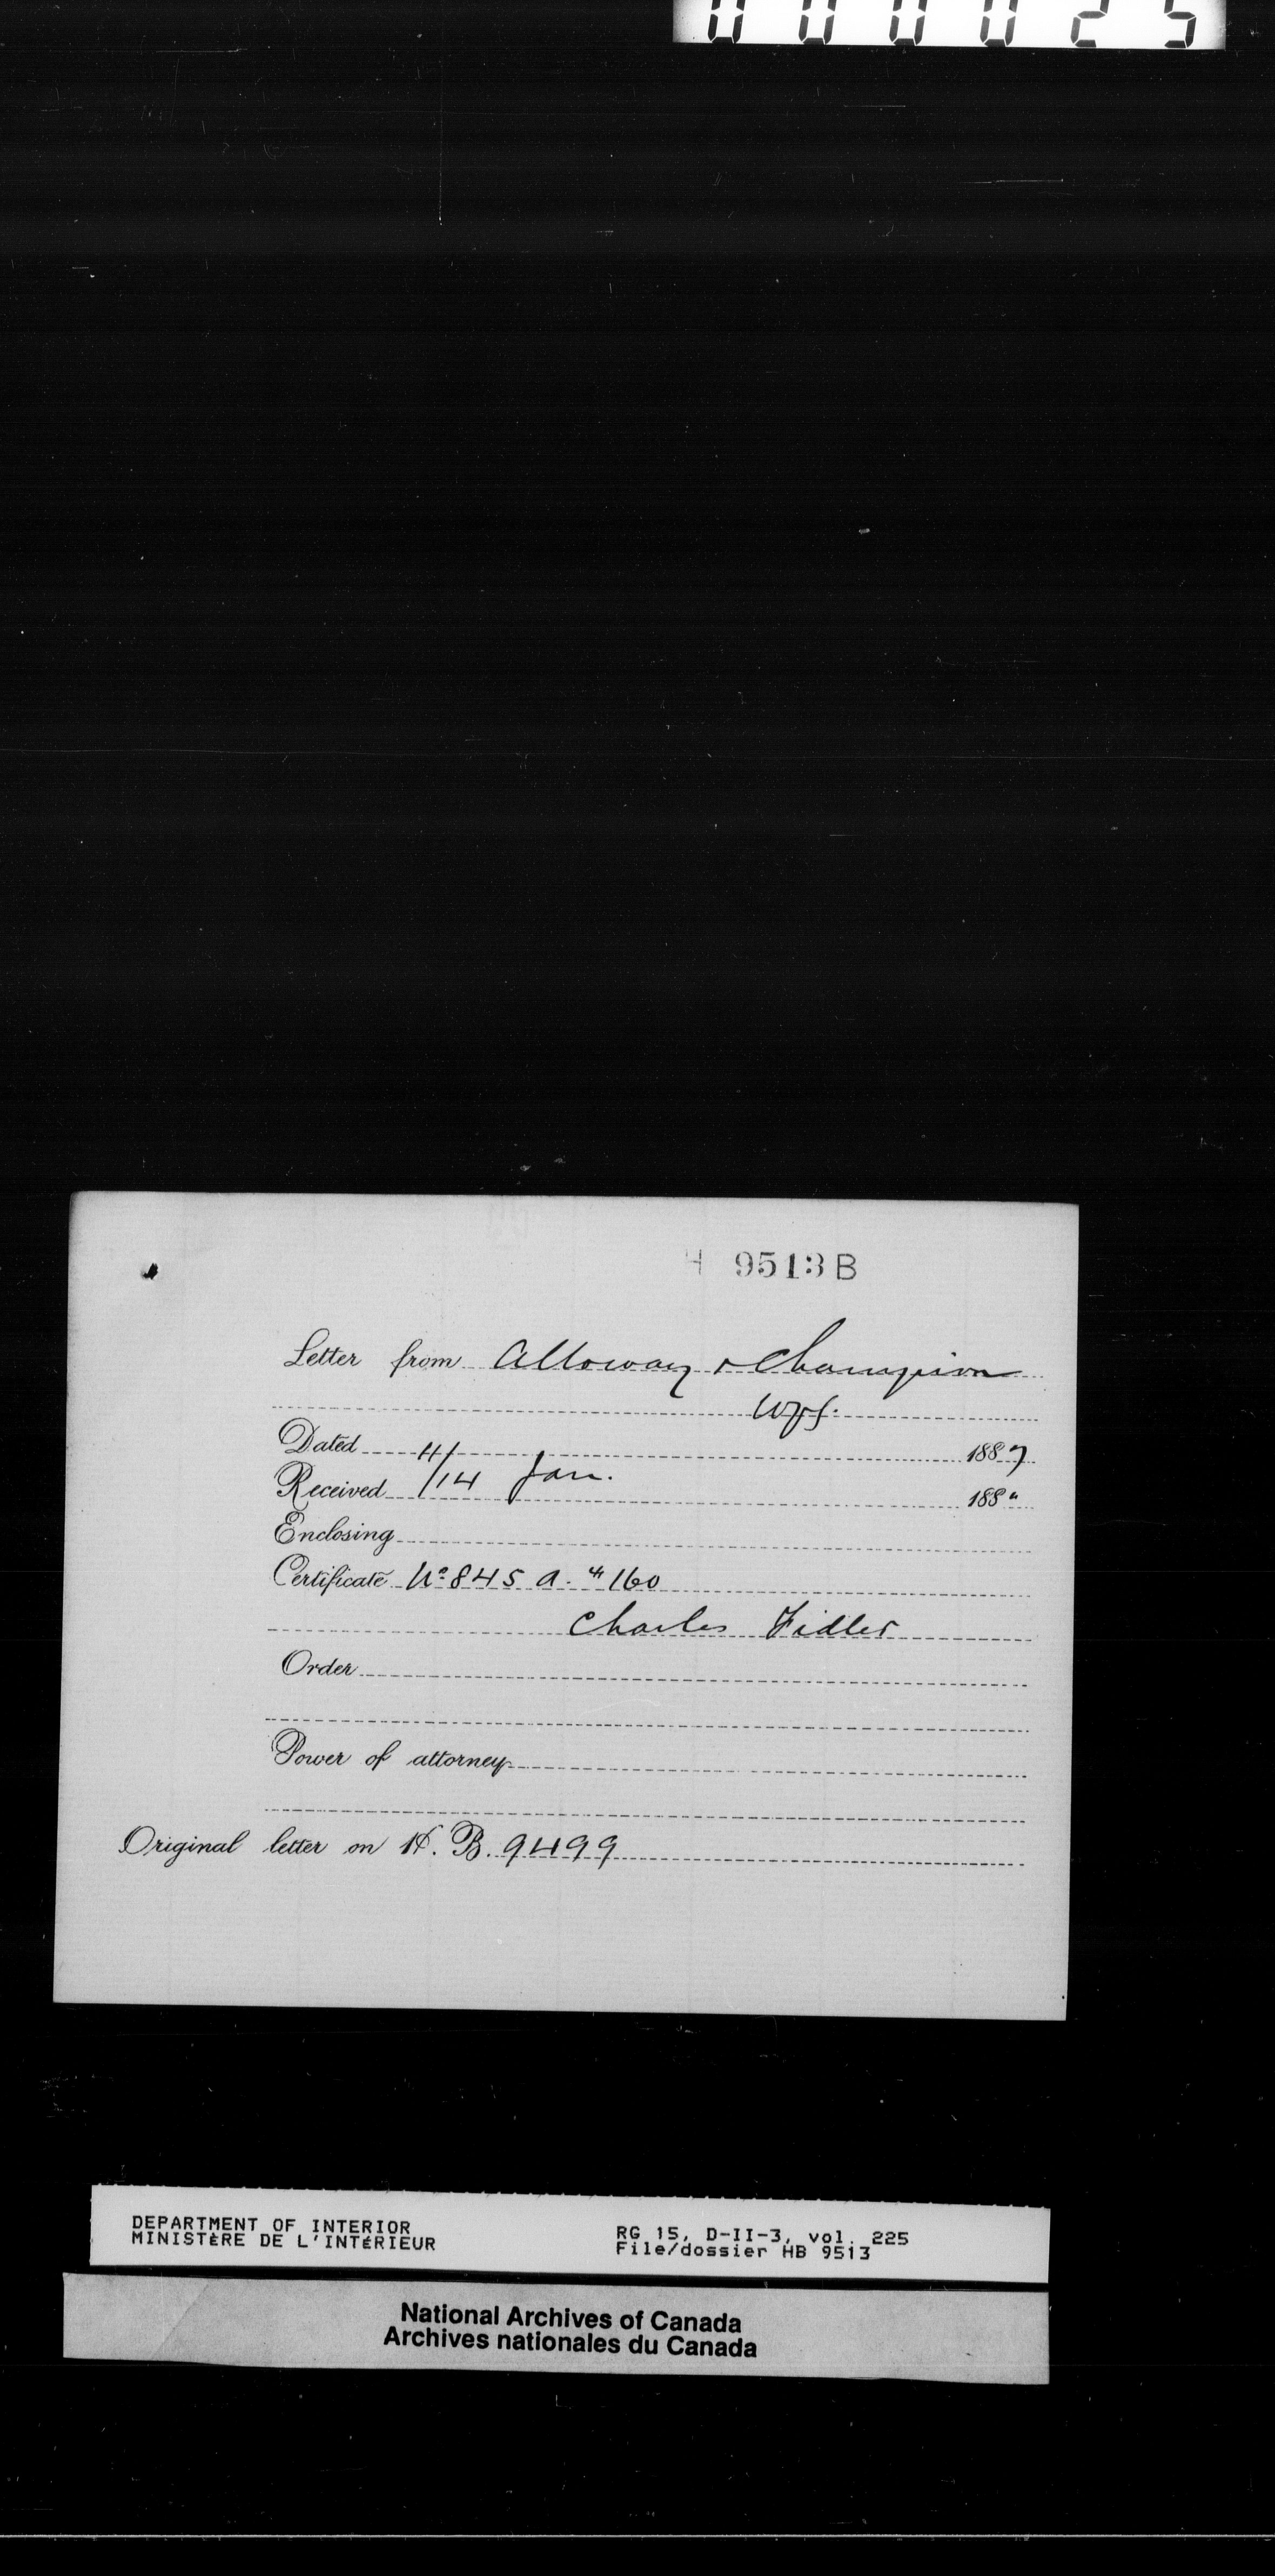 000025
H 9513 B
Letter from Alloway & Champion
Wpg.
Dated 11/ 1887
Received /14 Jan. 188"
Enclosing
Certificate No 845 A. " 160
Charles Fidler
Order
Power of attorney
Original letter on H. B. 9499
DEPARTMENT OF INTERIOR
MINISTÈRE DE L'INTÉRIEUR
RG 15, D-II-3, vol. 225
File/dossier HB 9513
National Archives of Canada
Archives nationales du Canada